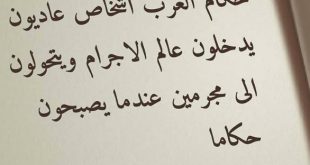 حكام العرب اشخاص عاديون
يدخلون عالم الاجرام ويتحولون
الى مجرمين عندما يصبحون
حكاما